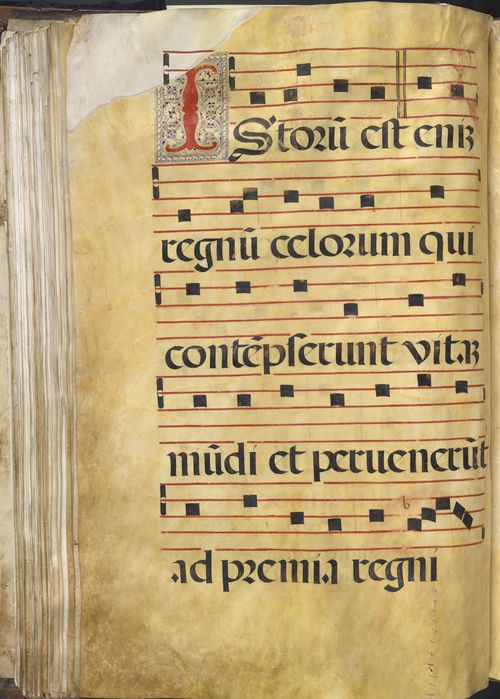 IStorū est eniꝫ
regnū celorum qui
contēpserunt vitaꝫ
mūdi et peruenerūt
ad premia regni